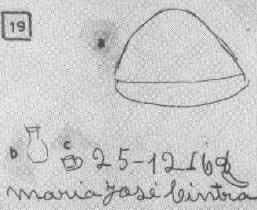 19
B
D C 25-12-169
Maria José Cintra